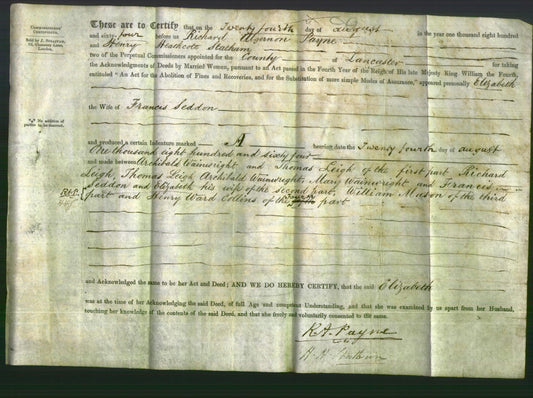 COMMISSIONERS'
CERTIFICATE.
Sold by J. SULLIVAN,
Chancery Lane,
London.
These are to Certify that on the Twenty fourth day of August in the year one thousand eight hundred
and sixty four before us Richard Algernon Payne
and Henry Heathcote Statham
two of the Perpetual Commissioners appointed for the County of Lancaster for taking
the Acknowledgments of Deeds by Married Women, pursuant to an Act passed in the Fourth Year of the Reign of His late Majesty King William the Fourth,
entituled "An Act for the Abolition of Fines and Recoveries, and for the Substitution of more simple Modes of Assurance," appeared personally Elizabeth
the Wife of Francis Seddon
"A" No addition of
parties to be inserted.
and produced a certain Indenture marked A bearing date the Twenty fourth day of August
One thousand eight hundred and sixty four
and made between Archibald Wainwright and Thomas Leigh of the first part Richard
Leigh, Thomas Leigh Archibald Wainwright, Mary Wainwright and Francis
Seddon and Elizabeth his wife of the second part, William Mason of the third
part and Henry Ward Collins of the fourth part
and Acknowledged the same to be her Act and Deed; AND WE DO HEREBY CERTIFY, that the said Elizabeth
was at the time of her Acknowledging the said Deed, of full Age and competent Understanding, and that she was examined by us apart from her Husband,
touching her knowledge of the contents of the said Deed, and that she freely and voluntarily consented to the same.
R. A. Payne
H. H. Statham